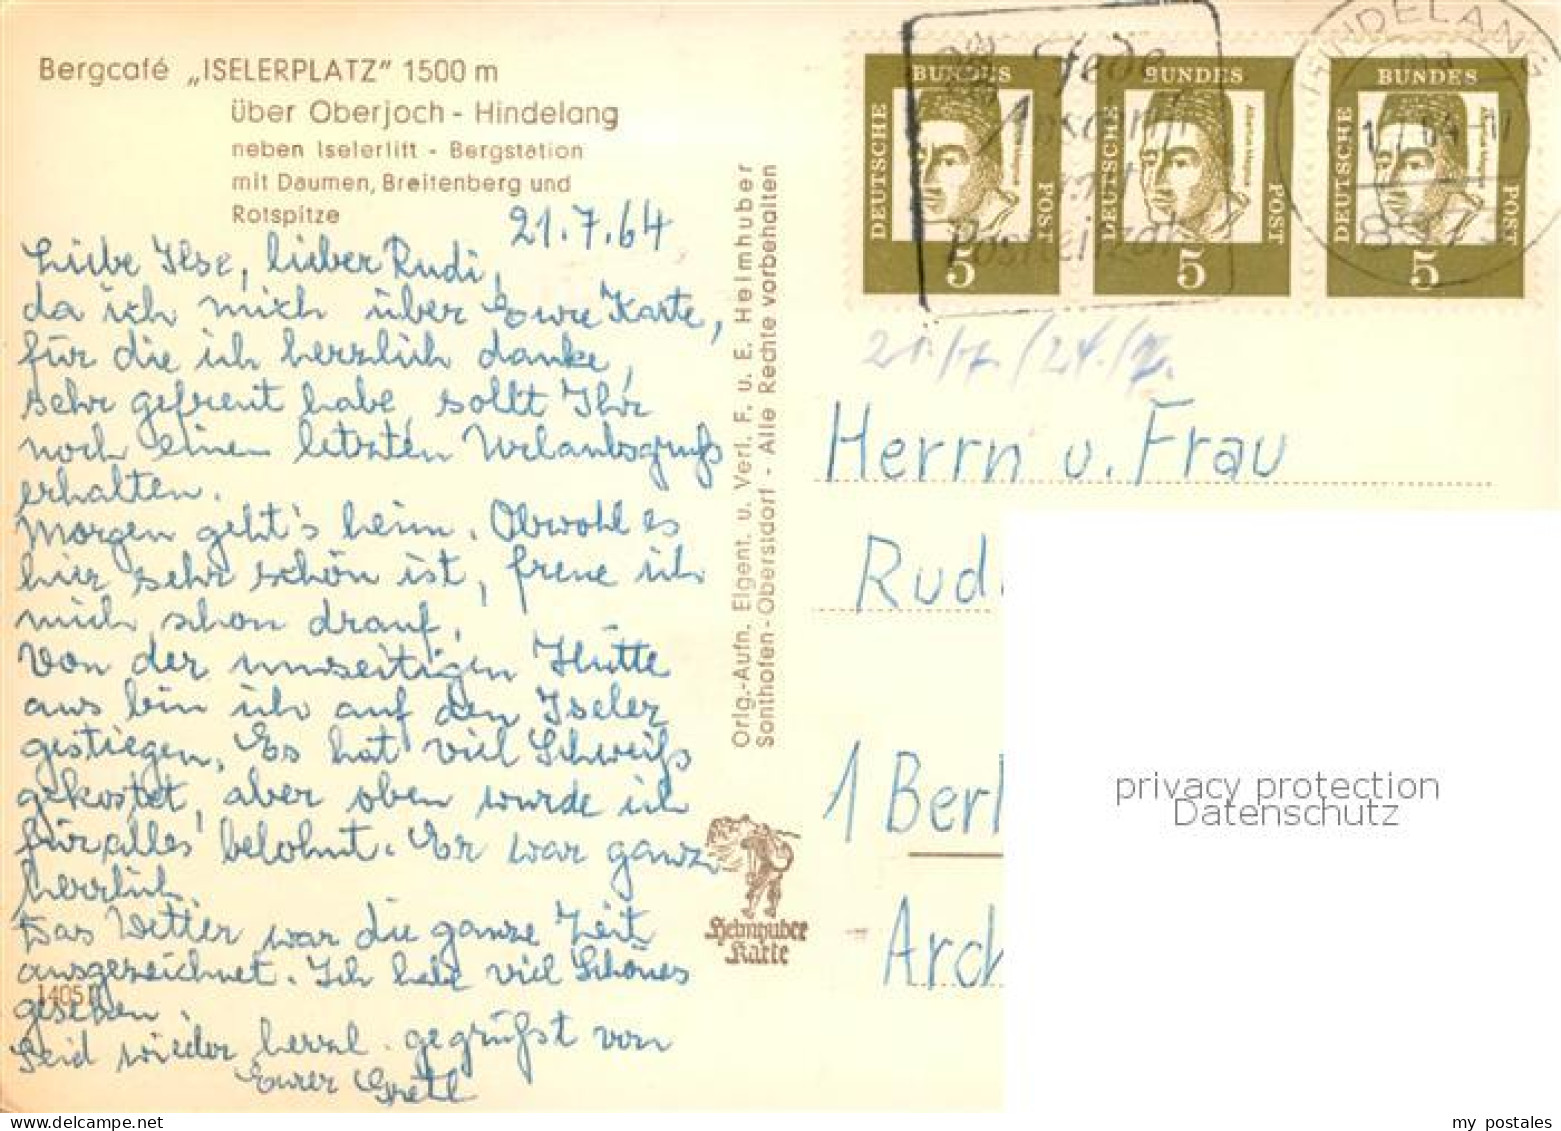 Bergcafé „ISELERPLATZ" 1500 m
über Oberjoch - Hindelang
neben Iselerlift - Bergstation
mit Daumen, Breitenberg und
Rotspitze
21.7.64
Liebe Ilse, lieber Rudi,
da ich mich über Eure Karte,
für die ich herzlich danke,
sehr gefreut habe, sollt Ihr
noch einen letzten Urlaubsgruß
erhalten.
Morgen geht's heim. Obwohl es
hier sehr schön ist, freue ich
mich schon drauf.
Von der umseitigen Hütte
aus bin ich auf den Iseler
gestiegen. Es hat viel Schweiß
gekostet, aber oben wurde ich
für alles belohnt. Er war ganz
herrlich.
Das Wetter war die ganze Zeit
ausgezeichnet. Ich habe viel Schönes
gesehen
Seid wieder herzl. gegrüßt von
Eurer Gretl
14051
Orig.-Aufn. Eigent. u. Verl. F. u. E. Heimhuber
Sonthofen-Oberstdorf - Alle Rechte vorbehalten
Heimhuber
Karte
DEUTSCHE BUNDES POST
5
DEUTSCHE BUNDES POST
5
DEUTSCHE BUNDES POST
5
Jede
Anschrift
mit
Postleitzahl
HINDELANG
8973
21./7./24./7.
Herrn u. Frau
Rud
1 Berl
Arch
privacy protection
Datenschutz
my postales